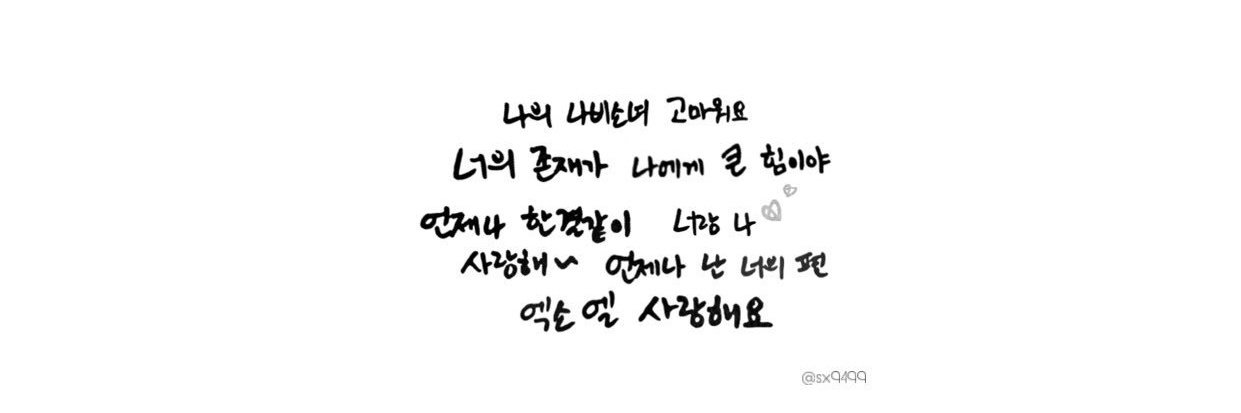 나의 나비소녀 고마워요
너의 존재가 나에게 큰 힘이야
언제나 한결같이 너랑 나
사랑해~ 언제나 난 너의 편
엑소엘 사랑해요
@sx9499